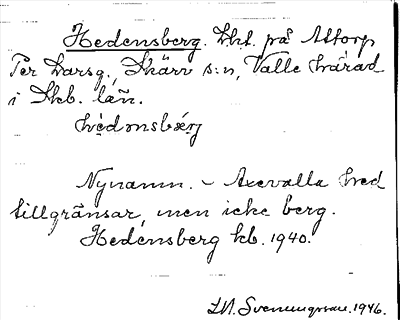 Hedensberg. Lht. på Attorp
Per Larsg., Skärv s:n, Valle härad
i Skb. län.
hèdənsbærj
Nynamn. – Axevalla hed
tillgränsar, men icke berg.
Hedensberg kb. 1940.
1946.